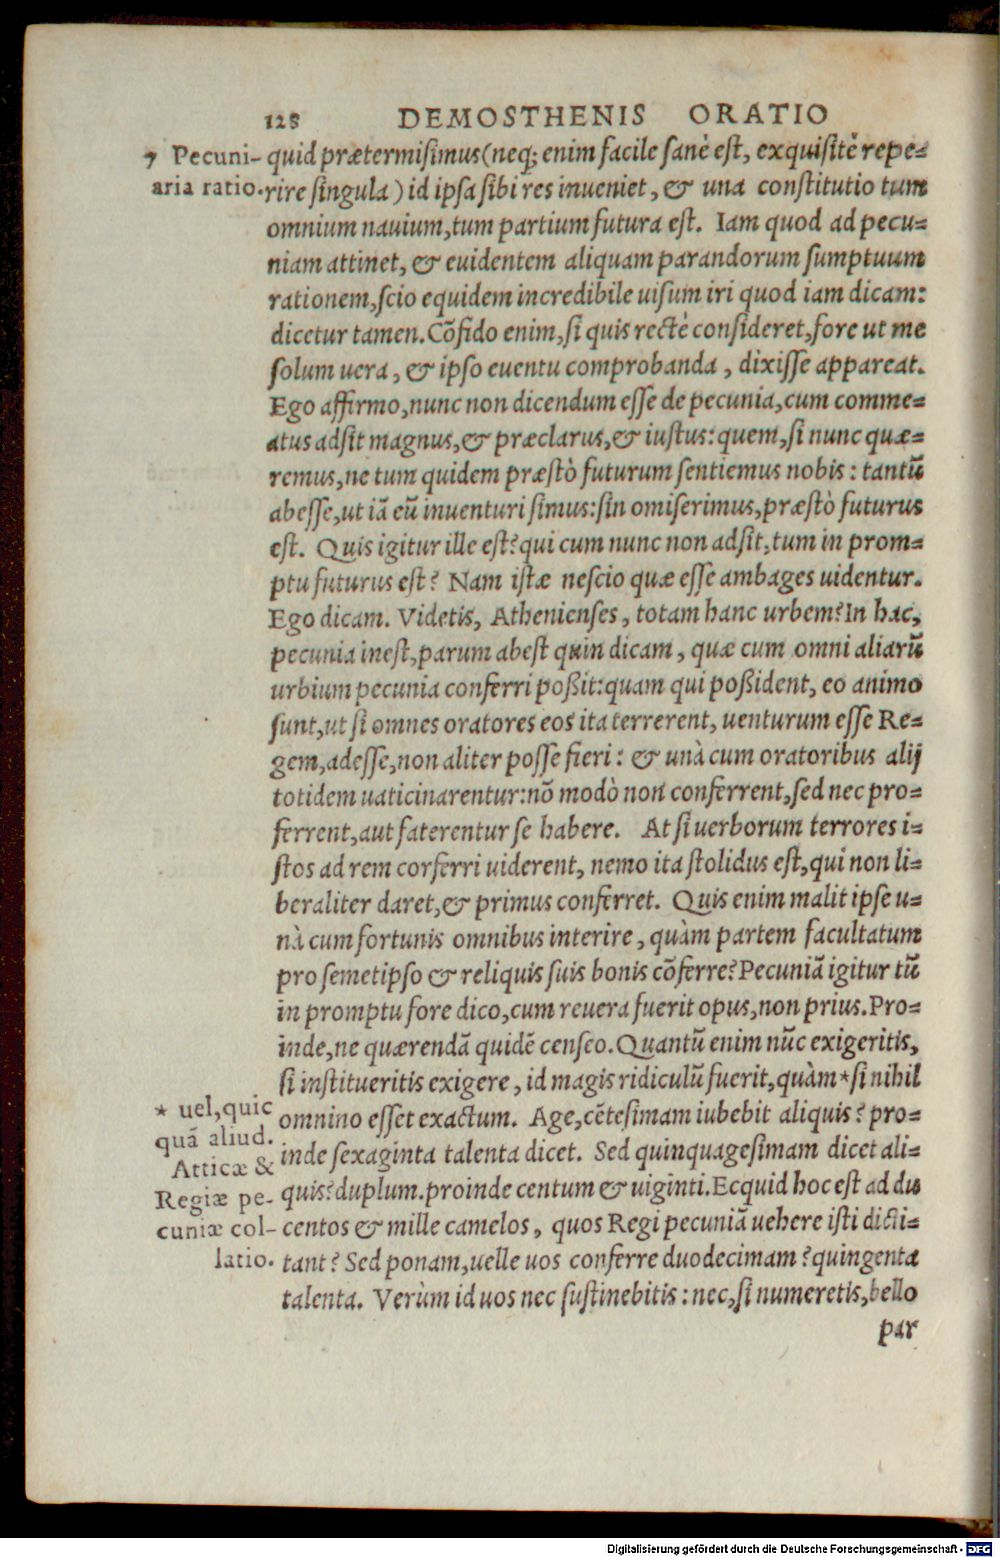 128 DEMOSTHENIS ORATIO
7 Pecuni-
aria ratio.
quid prætermisimus (neq; enim facile sanè est, exquisitè repe=
rire singula) id ipsa sibi res inueniet, & una constitutio tum
omnium nauium, tum partium futura est. Iam quod ad pecu=
niam attinet, & euidentem aliquam parandorum sumptuum
rationem, scio equidem incredibile uisum iri quod iam dicam:
dicetur tamen. Cõfido enim, si quis rectè consideret, fore ut me
solum uera, & ipso euentu comprobanda, dixisse appareat.
Ego affirmo, nunc non dicendum esse de pecunia, cum comme=
atus adsit magnus, & præclarus, & iustus: quem, si nunc quæ=
remus, ne tum quidem præstò futurum sentiemus nobis: tantũ
abesse, ut iã eũ inuenturi simus: sin omiserimus, præstò futurus
est. Quis igitur ille est? qui cum nunc non adsit, tum in prom=
ptu futurus est? Nam istæ nescio quæ esse ambages uidentur.
Ego dicam. Videtis, Athenienses, totam hanc urbem? In hac,
pecunia inest, parum abest quin dicam, quæ cum omni aliarũ
urbium pecunia conferri poßit: quam qui poßident, eo animo
sunt, ut si omnes oratores eos ita terrerent, uenturum esse Re=
gem, adesse, non aliter posse fieri: & unà cum oratoribus alij
totidem uaticinarentur: nõ modò non conferrent, sed nec pro=
ferrent, aut faterentur se habere. At si uerborum terrores i=
stos ad rem corferri uiderent, nemo ita stolidus est, qui non li=
beraliter daret, & primus conferret. Quis enim malit ipse u=
nà cum fortunis omnibus interire, quàm partem facultatum
pro semetipso & reliquis suis bonis cõferre? Pecuniã igitur tũ
in promptu fore dico, cum reuera fuerit opus, non prius. Pro=
inde, ne quærendã quidẽ censeo. Quantũ enim nũc exigeritis,
si institueritis exigere, id magis ridiculũ fuerit, quàm * si nihil
omnino esset exactum. Age, cẽtesimam iubebit aliquis? pro=
inde sexaginta talenta dicet. Sed quinquagesimam dicet ali=
quis? duplum. proinde centum & uiginti. Ecquid hoc est ad du
centos & mille camelos, quos Regi pecuniã uehere isti dicti=
tant? Sed ponam, uelle uos conferre duodecimam? quingenta
talenta. Verùm id uos nec sustinebitis: nec, si numeretis, bello
* uel, quic
quã aliud.
Atticæ &
Regiæ pe-
cuniæ col-
latio.
par
Digitalisierung gefördert durch die Deutsche Forschungsgemeinschaft - DFG